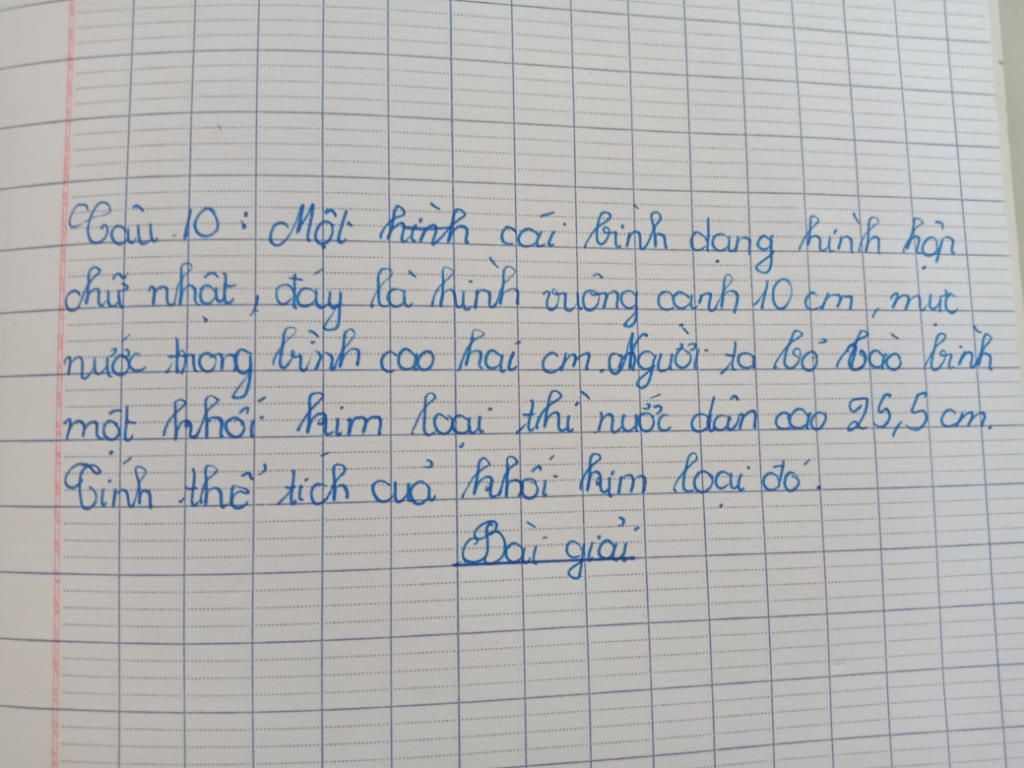 Câu 10: Một hình cái bình dạng hình hộp
chữ nhật, đáy là hình vuông cạnh 10 cm, mực
nước trong bình cao hai cm. Người ta bỏ vào bình
một khối kim loại thì nước dân cao 25,5 cm.
Tính thể tích của khối kim loại đó.
Bài giải